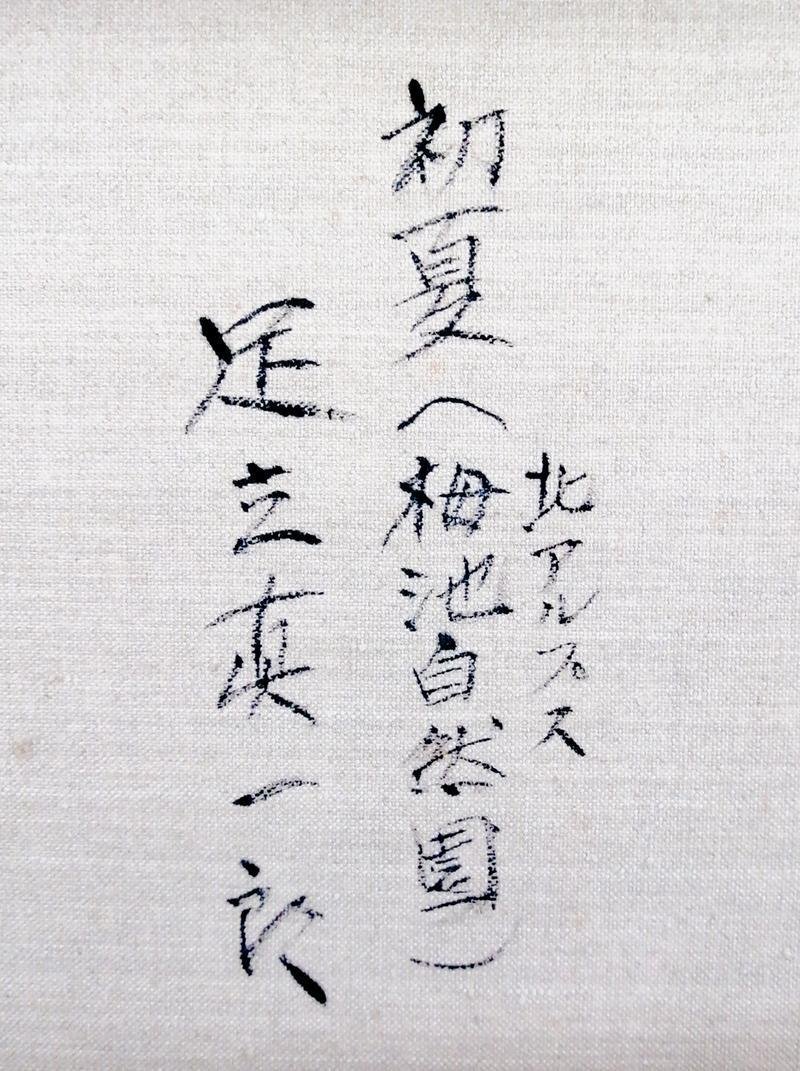 北アルプス
初夏（栂池自然園）
足立真一郎